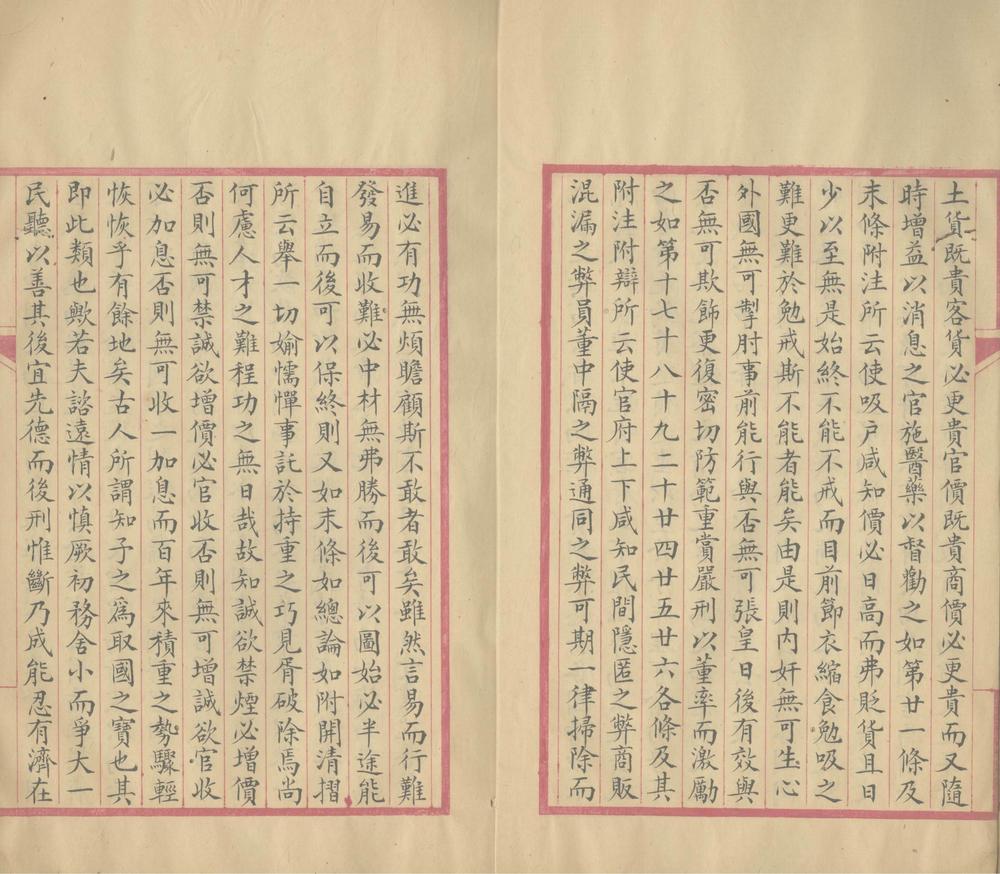 土貨既貴客貨必更貴官價既貴商價必更貴而又隨
時增益以消息之官施醫藥以督勸之如第廿一條及
末條附注所云使吸户咸知價必日高而弗貶貨且日
少以至無是始終不能不戒而目前節衣縮食勉吸之
難更難於勉戒斯不能者能矣由是則内奸無可生心
外國無可掣肘事前能行與否無可張皇日後有效與
否無可欺飾更復密切防範重賞嚴刑以董率而激勵
之如第十七十八十九二十廿四廿五廿六各條及其
附注附辯所云使官府上下咸知民間隱匿之弊商販
混漏之弊員董中隔之弊通同之弊可期一律掃除而
進必有功無煩瞻顧斯不敢者敢矣雖然言易而行難
發易而收難必中材無弗勝而後可以圖始必半途能
自立而後可以保終則又如末條如總論如附開清摺
所云舉一切媮懦憚事託於持重之巧見胥破除焉尚
何慮人才之難程功之無日哉故知誠欲禁煙必增價
否則無可禁誠欲增價必官收否則無可增誠欲官收
必加息否則無可收一加息而百年來積重之勢驟輕
恢恢乎有餘地矣古人所謂知予之爲取國之寶也其
即此類也歟若夫諮遠情以慎厥初務舍小而爭大一
民聽以善其後宜先德而後刑惟斷乃成能忍有濟在